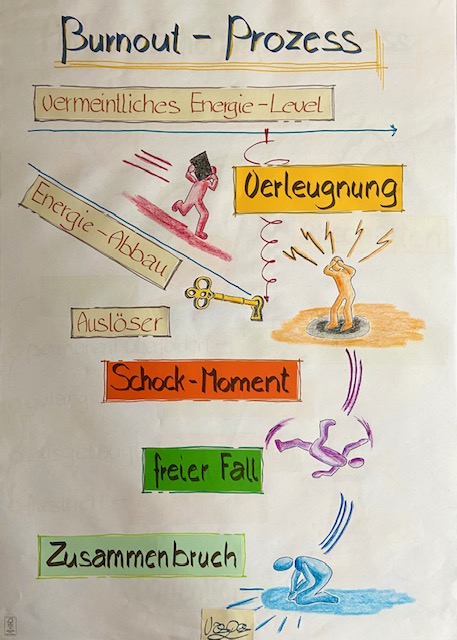 Burnout – Prozess
Vermeintliches Energie-Level
Verleugnung
Energie-Abbau
Auslöser
Schock-Moment
freier Fall
Zusammenbruch